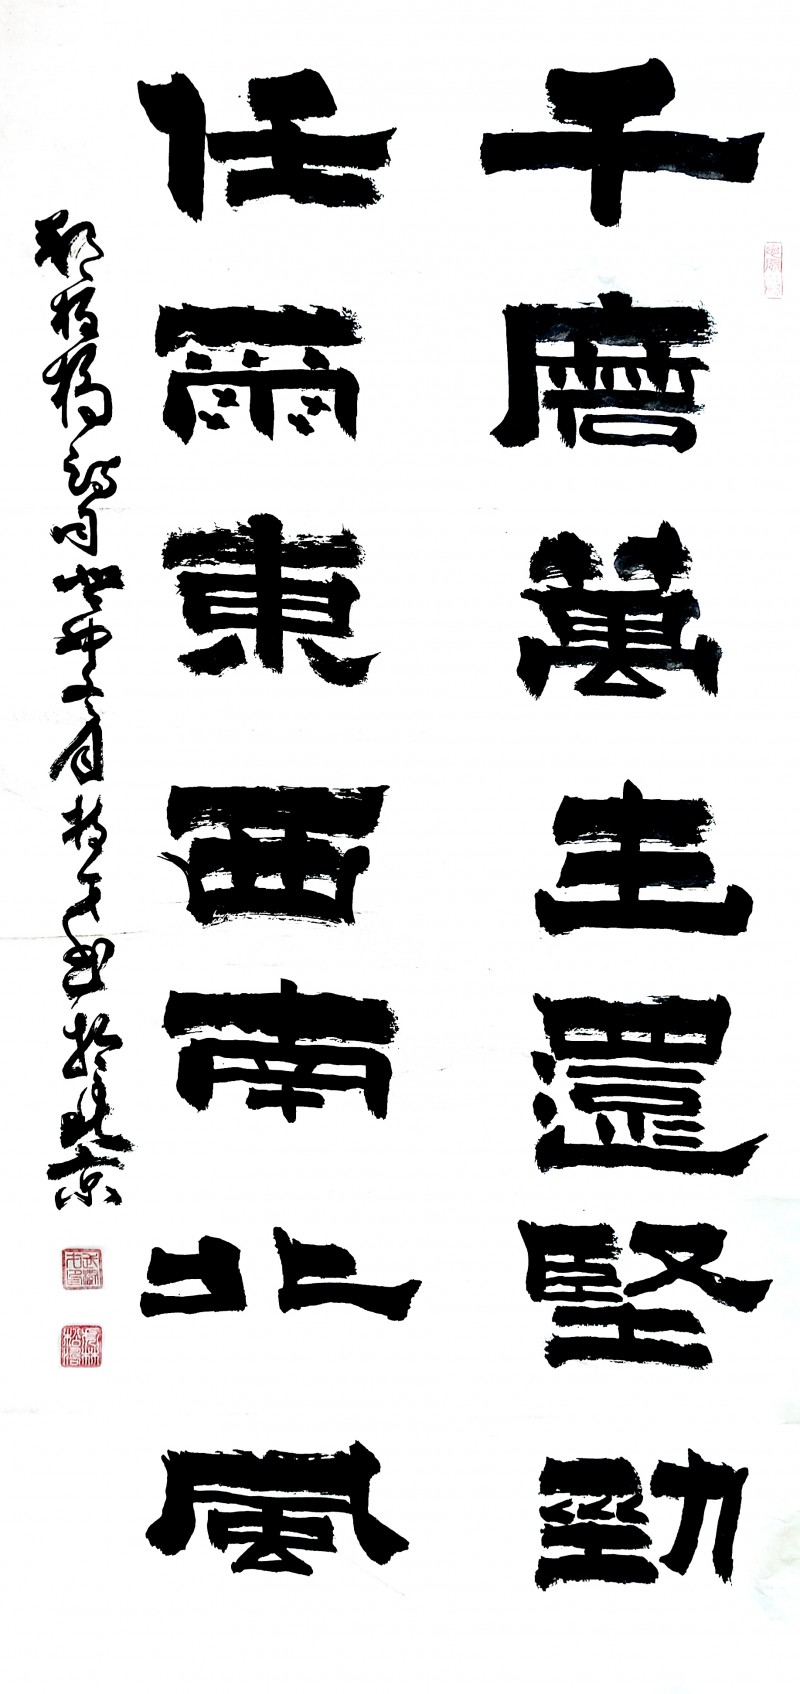 千磨萬主還堅勁
任爾東西南北風
鄭板橋詩句 月 書於北京